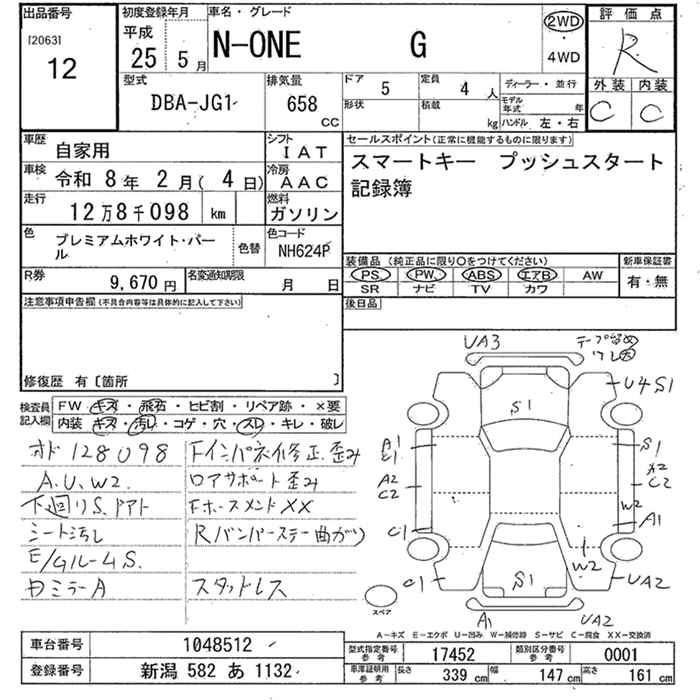 出品番号
[2063]
12
初度登録年月
平成
25 5 月
車名・グレード
N-ONE G
2WD
・
4WD
評価点
R
型式
DBA-JG1
排気量
658
CC
ドア
5
定員
4 人
ディーラー・並行
形状
積載
kg
モデル年式
年
ハンドル 左・右
外装 内装
C C
車歴
自家用
シフト
IAT
セールスポイント(正常に機能するものに限ります)
スマートキー プッシュスタート
記録簿
車検
令和 8年 2月( 4日)
冷房
AAC
走行
12万8千098 km
燃料
ガソリン
色
プレミアムホワイト・パール
色替
色コード
NH624P
R券
9,670 円
名変通知期限
月 日
装備品 (純正品に限り○をつけてください)
PS PW ABS エアB AW
SR ナビ TV カワ
新車保証書
有・無
後日品
注意事項申告欄(不具合内容等は具体的に記入して下さい)
修復歴 有〔箇所 〕
検査員記入欄
FW・キズ・飛石・ヒビ割・リペア跡・×要
内装・キズ・汚れ・コゲ・穴・スレ・キレ・破レ
オド128098
A.U.W2.
下廻りS.
シート汚し
E/Gルーム S.
ミラーA
Fインパネ修正.歪み
ロアサポート歪み
XX
Rバンパーステー曲がり
スタッドレス
UA3
テープ留め
S1
U4S1
A1
S1
A2
C2
C1
C1
S1
C2
W2
A1
W2
S1
UA2
A1
UA2
スペア
A-キズ E-エクボ U-凹み W-補修跡 S-サビ C-腐食 XX-交換済
車台番号
1048512
登録番号
新潟 582 あ 1132
型式指定番号
参考
17452
類別区分番号
参考
0001
車庫証明用
参考
長さ
339 cm
幅
147 cm
高さ
161 cm